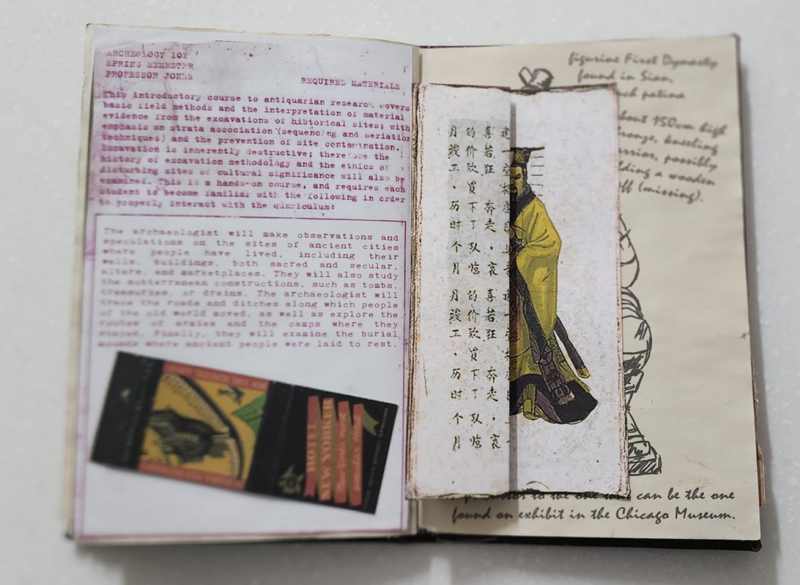 ARCHEOLOGY 101
SPRING SEMESTER
PROFESSOR JONES
REQUIRED MATERIALS
This introductory course to antiquarian research covers
basic field methods and the interpretation of material
evidence from the excavations of historical sites; with
emphasis on strata association (sequencing and seriation
techniques) and the prevention of site contamination.
Excavation is inherently destructive; therefore the
history of excavation methodology and the ethics of
disturbing sites of cultural significance will also be
examined. This is a hands-on course, and requires each
student to become familiar with the following in order
to properly interact with the curriculum:
The archaeologist will make observations and
speculations on the sites of ancient cities
where people have lived, including their
walls, buildings, both sacred and secular,
altars, and marketplaces. They will also study
the subterranean constructions, such as tombs,
treasuries, or drains. The archaeologist will
trace the roads and ditches along which people
of the old world moved, as well as explore the
routes of armies and the camps where they
stopped. Finally, they will examine the burial
mounds where ancient people were laid to rest.
HOTEL
NEW YORKER
喜若狂 奔走·哀 喜若狂 奔走·哀
月竣工·历时个月 月竣工·历时个月
figurine First Dynasty
found in Sian,
patina
about 150cm high
bronze, kneeling
possibly
a wooden
(missing).
to the one can be the one
found on exhibit in the Chicago Museum.